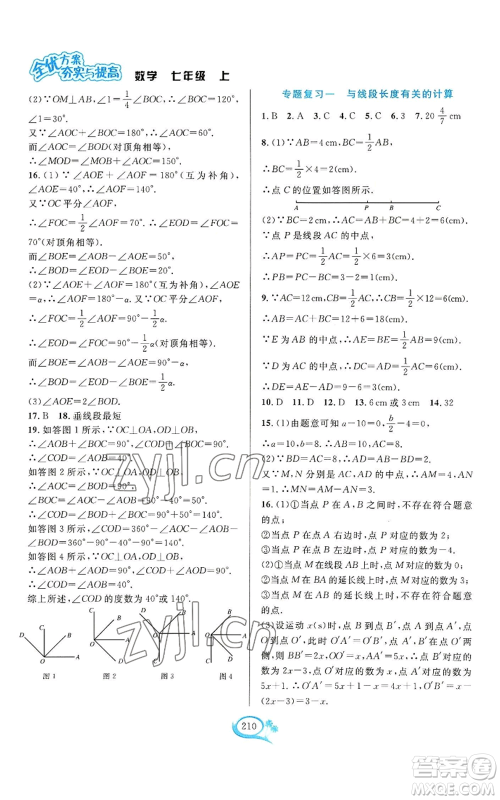 全优方案
夯实与提高
数学 七年级 上
(2)∵OM⊥AB,∠1=1/4∠BOC,∠BOC=120°,
∠1=30°.
又∵∠AOC+∠BOC=180°,
∴∠AOC=60°.
∵∠AOC=∠BOD(对顶角相等).
∴∠MOD=∠MOB+∠BOD=150°.
16.(1)∵∠AOE+∠AOF=180°(互为补角),
∠AOE=40°,∴∠AOF=140°.
又∵OC平分∠AOF,
∴∠FOC=1/2∠AOF=70°.∴∠EOD=∠FOC=
70°(对顶角相等).
而∠BOE=∠AOB-∠AOE=50°,
∴∠BOD=∠EOD-∠BOE=20°.
(2)∵∠AOE+∠AOF=180°(互为补角),∠AOE
=α,∴∠AOF=180°-α.又∵OC平分∠AOF,
∴∠FOC=90°-1/2α.
∴∠EOD=∠FOC=90°-1/2α(对顶角相等).
而∠BOE=∠AOB-∠AOE=90°-α,
∴∠BOD=∠EOD-∠BOE=1/2α.
(3)∠AOE=2∠BOD.
17.B 18.垂线段最短
19.如答图1所示,∵OC⊥OA,OD⊥OB,
∴∠AOB+∠BOC=90°,∠BOC+∠COD=90°.
∴∠COD=∠AOB=40°.
如答图2所示,∵OC⊥OA,OD⊥OB,
∴∠AOC=90°,∠BOD=90°.
∠BOC=∠AOC-∠AOB=90°-40°=50°.
∴∠COD=∠BOC+∠BOD=50°+90°=140°.
如答图3所示,∵OC⊥OA,OD⊥OB,
∴∠AOC=90°,∠BOD=90°.
∴∠AOD=∠BOD-∠AOB=90°-40°=50°.
∴∠COD=∠AOC+∠AOD=90°+50°=140°.
如答图4所示,∵OC⊥OA,OD⊥OB,
∴∠AOB+∠AOD=90°,∠AOD+∠COD=90°.
∴∠COD=∠AOB=40°.
综上所述,∠COD的度数为40°或140°.
图1 图2 图3 图4
专题复习一 与线段长度有关的计算
1.B 2.A 3.C 4.C 5.C 6.3 7.20 4/7 cm
8.(1)∵AB=4cm,BC=1/2AB,
∴BC=1/2×4=2(cm).
点C的位置如答图所示.
A P B C
(2)∵AB=4cm,BC=2cm,
∴AC=AB+BC=4+2=6(cm).
∵点P是线段AC的中点,
∴AP=PC=1/2AC=1/2×6=3(cm).
∴PB=AB-AP=4-3=1(cm).
9.∵AC=12cm,CB=1/2AC,∴CB=1/2×12=6(cm).
∴AB=AC+CB=12+6=18(cm).
∵E为AB的中点,∴AE=1/2AB=9(cm).
∵D为AC的中点,∴AD=1/2AC=6(cm).
∴DE=AE-AD=9-6=3(cm).
10.D 11.D 12.D 13.6cm或3cm 14.32
15.(1)由题意可知a-10=0,b/2-4=0,
∴a=10,b=8.
(2)∵a=10,b=8,∴AB=10,AC=8.
又∵M,N分别是AC,AD的中点,∴AM=4,AN=
5.∴MN=AN-AM=1.
16.(1)①当点P在A,B之间时,不存在符合题意
的点;
②当点P在点A右侧时,点P对应的数为2;
③当点P在点B左侧时,点P对应的数为-4.
(2)①当点M在A,B之间时,不存在符合题意
的点;
②当点M在AB的延长线上时,点M对应的数
为-5;
③当点M在BA的延长线上时,点M对应的数
为3.
(3)设运动x(s)时,点B到B′,点A到A′,点O
到O′,此时O′A′=O′B′,点A′,B′在点O′两
侧,则BB′=2x,OO′=x,AA′=5x.
∴点B′对应的数为2x-3,点O′对应的数为
x,点A′对应的数为
5x+1.∴O′A′=5x+1-x=4x+1,O′B′=x-
(2x-3)=3-x.
∴4x+1=3-x,解得x=0.4.
210